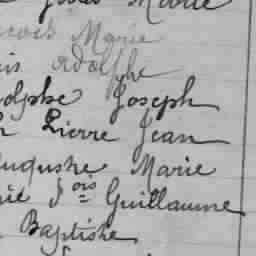 Marie
Marie
Adolphe
olphe Joseph
Pierre Jean
uguste Marie
ie Jois Guillaume
Baptiste